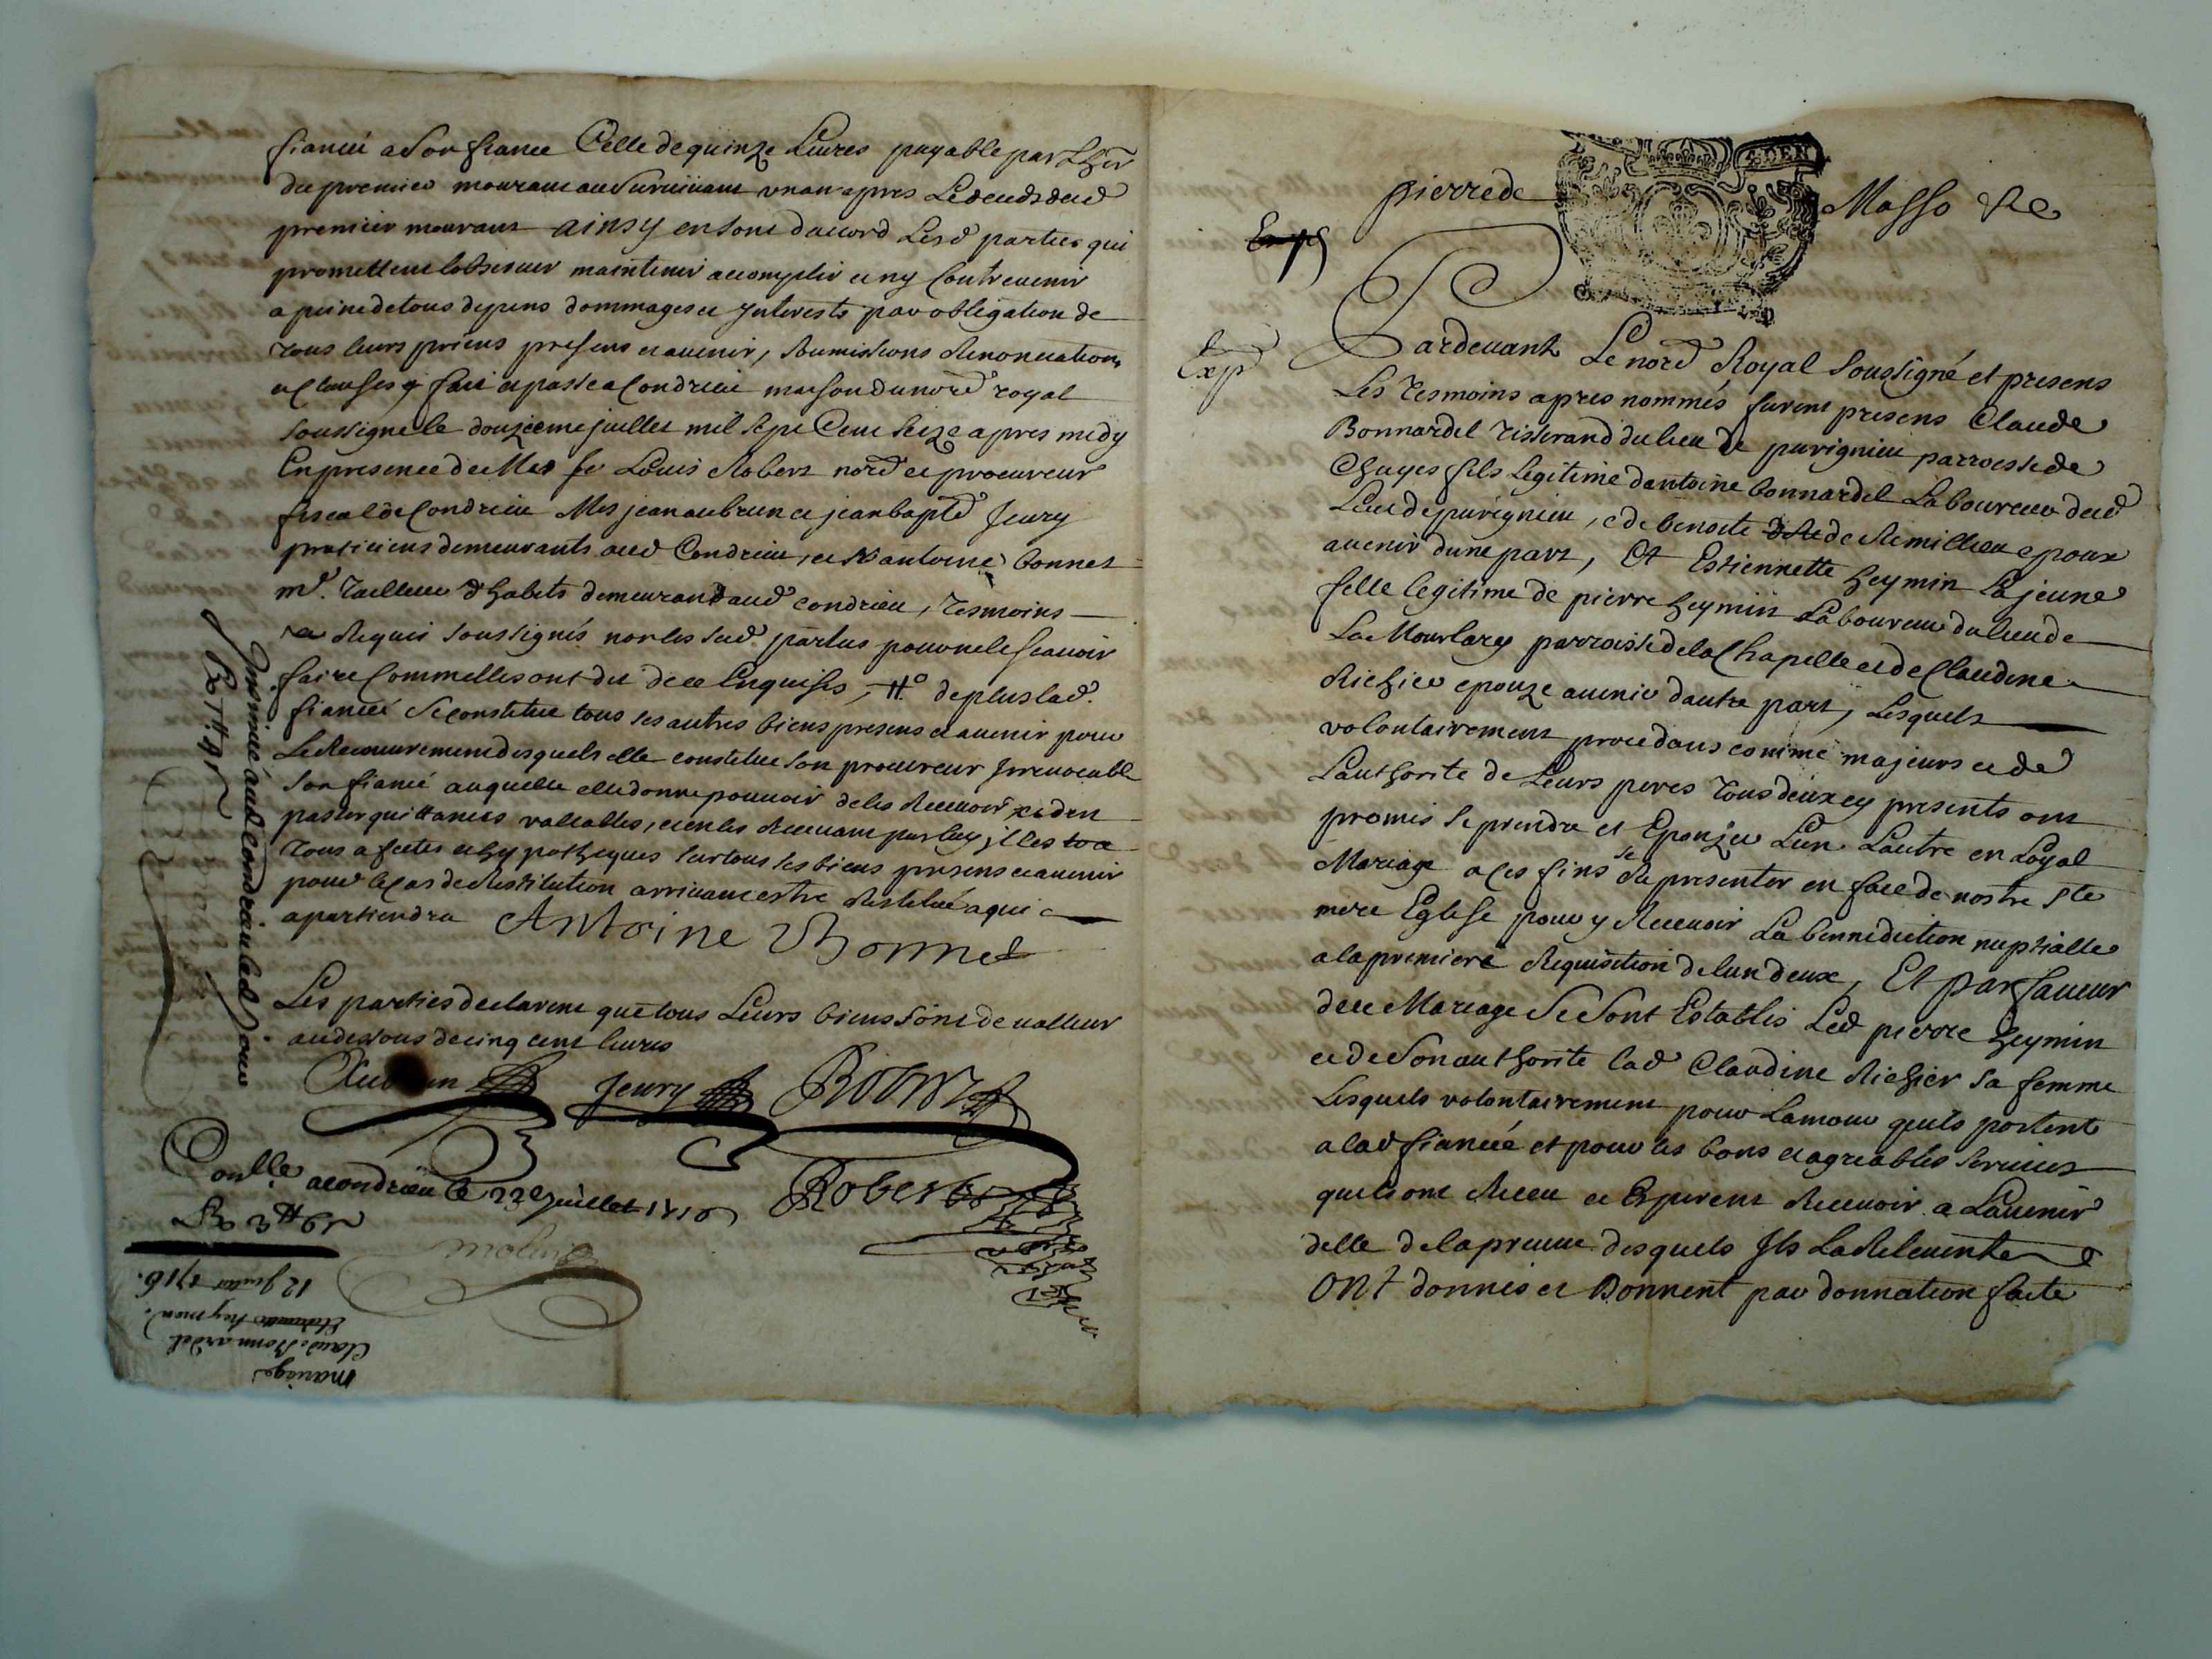 fiancée a son fiance Celle de quinze Livres payable par Lher
du premier mourant au Survivant un an apres Le deceds dud
premier mourant ainsy en sont daccord Lesd parties qui
promettent lobserver maintenir accomplir et ny Contrevenir
a peine de tous depens dommages et Interests par obligation de
tous leurs priens presens et avenir, Soumissions Renonciations
et Clauses fait et passé a Condrieu maison du nore royal
soussigne le douzieme juillet mil sept Cent Seize apres midy
En presence de Mes Louis Robert nore et procureur
fiscal de Condrieu Mes jean aubrun et jean bapte Jeury
praticiens demeurants aud Condrieu, et Sr antoine bonnet
md. Tailleur d'habits demeurant aud condrieu, Tesmoins
Requis soussignés non les sud. parties pour ne le scavoir
faire Comme elles ont dit de ce Enquises, de plus lad.
fiancée Se constitue tous ses autres biens presens et avenir pour
Le Recouvrement desquels elle constitue son procureur Irrevocable
son fiancé auquel elle donne pouvoir de les Recevoir et den
passer quittances vallables, et en les Recevant par luy il les
tous afectés et hypotheques sur tous ses biens presens et avenir
pour le cas de Restitution arrivant estre Restitué a qui
apartiendra Antoine Bonnet
Les parties declarent que tous Leurs biens sont de valleur
au dessous de cinq cent livres
Aubrun Jeury Robert
Conlle a condrieu le 22e juillet 1716 Robert
Insinué aud Condrieu led jour
12 Juillet 1716.
Etiennette heymin.
Claude Bonnardel
mariage
pierre de Masso
8. DEN
Exp
Exp
Pardevant Le nore Royal Soussigné et presens
Les Tesmoins apres nommés furent presens Claude
Bonnardel Tisserand du lieu de purignieu parroisse de
Chuyes fils Legitime dantoine bonnardel Laboureur dud
Lieu de purignieu, e de benoite de Remillieu epoux
avenir dune part, Et Estiennette heymin La jeune
fille legitime de pierre heymin Laboureur du lieu de
La Mourlary parroisse de la Chapelle et de Claudine
Richier epouze avenir dautre part, Lesquels
volontairement procedans comme majeurs et de
Lauthorite de Leurs peres Tous deux cy presents ont
promis se prendre et Epouzer Lun Lautre en Loyal
Mariage a Ces fins se presenter en face de nostre Ste
mere Eglise pour y Recevoir La benediction nuptialle
a la premiere Requisition de lun deux, Et par faveur
de ce Mariage Se Sont Establis Led pierre heymin
et de Son authorite lad Claudine Richier sa femme
Lesquels volontairement pour Lamour quils portent
a lad fiancée et pour les bons et agreables services
quils ont Receu et Esperent Recevoir a Lavenir
delle de la preuve desquels Ils La Relevent
ONT donnés et Donnent par donnation faite